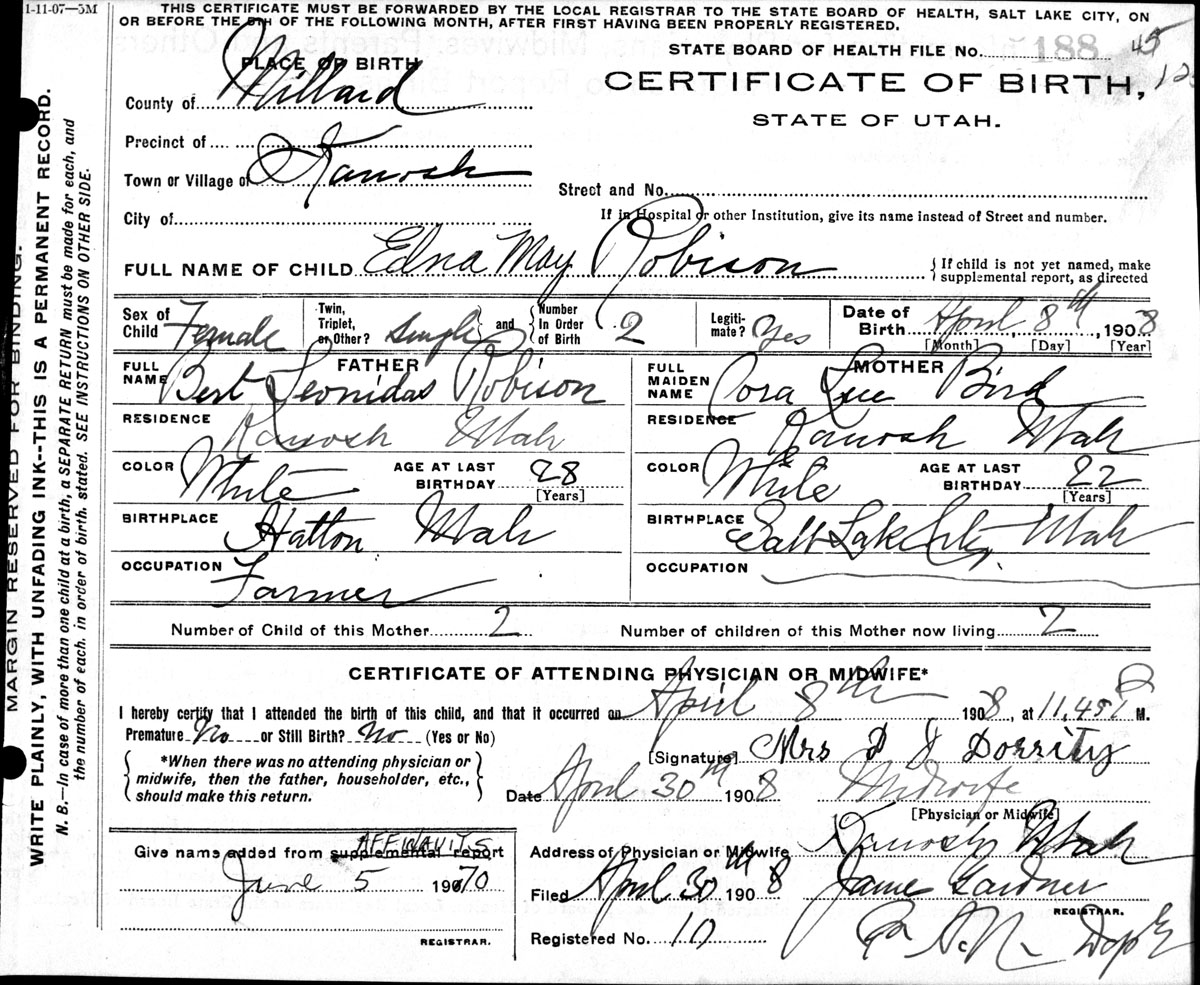 1-11-07—5M
THIS CERTIFICATE MUST BE FORWARDED BY THE LOCAL REGISTRAR TO THE STATE BOARD OF HEALTH, SALT LAKE CITY, ON
OR BEFORE THE 5TH OF THE FOLLOWING MONTH, AFTER FIRST HAVING BEEN PROPERLY REGISTERED.
STATE BOARD OF HEALTH FILE No. 188 45
CERTIFICATE OF BIRTH, 12
STATE OF UTAH.
PLACE OF BIRTH
County of Millard
Precinct of
Town or Village of Kanosh
City of
Street and No.
If in Hospital or other Institution, give its name instead of Street and number.
FULL NAME OF CHILD Edna May Robison { If child is not yet named, make
supplemental report, as directed
Sex of Child Female
Twin, Triplet, or Other? Single and Number In Order of Birth 2
Legiti-mate? Yes
Date of Birth April 8th, 1908
[Month] [Day] [Year]
FATHER
FULL NAME Bert Leonidas Robison
RESIDENCE Kanosh Utah
COLOR White AGE AT LAST BIRTHDAY 28 [Years]
BIRTHPLACE Hatton Utah
OCCUPATION Farmer
MOTHER
FULL MAIDEN NAME Cora Bird
RESIDENCE Kanosh Utah
COLOR White AGE AT LAST BIRTHDAY 22 [Years]
BIRTHPLACE Salt Lake City, Utah
OCCUPATION
Number of Child of this Mother 2 Number of children of this Mother now living 2
CERTIFICATE OF ATTENDING PHYSICIAN OR MIDWIFE*
I hereby certify that I attended the birth of this child, and that it occurred on April 8th 1908, at 11,45 P M.
Premature No or Still Birth? No (Yes or No)
{ *When there was no attending physician or
midwife, then the father, householder, etc.,
should make this return. }
[Signature] Mrs D J Dorrity
Date April 30th 1908 Midwife
[Physician or Midwife]
Address of Physician or Midwife Kanosh Utah
Filed April 30th 1908 Gardner
REGISTRAR.
Registered No. 10
Give name added from supplemental report AFFIDAVITS
June 5 1970
REGISTRAR.
MARGIN RESERVED FOR BINDING.
WRITE PLAINLY, WITH UNFADING INK--THIS IS A PERMANENT RECORD.
N. B.—In case of more than one child at a birth, a SEPARATE RETURN must be made for each, and
the number of each, in order of birth, stated. SEE INSTRUCTIONS ON OTHER SIDE.